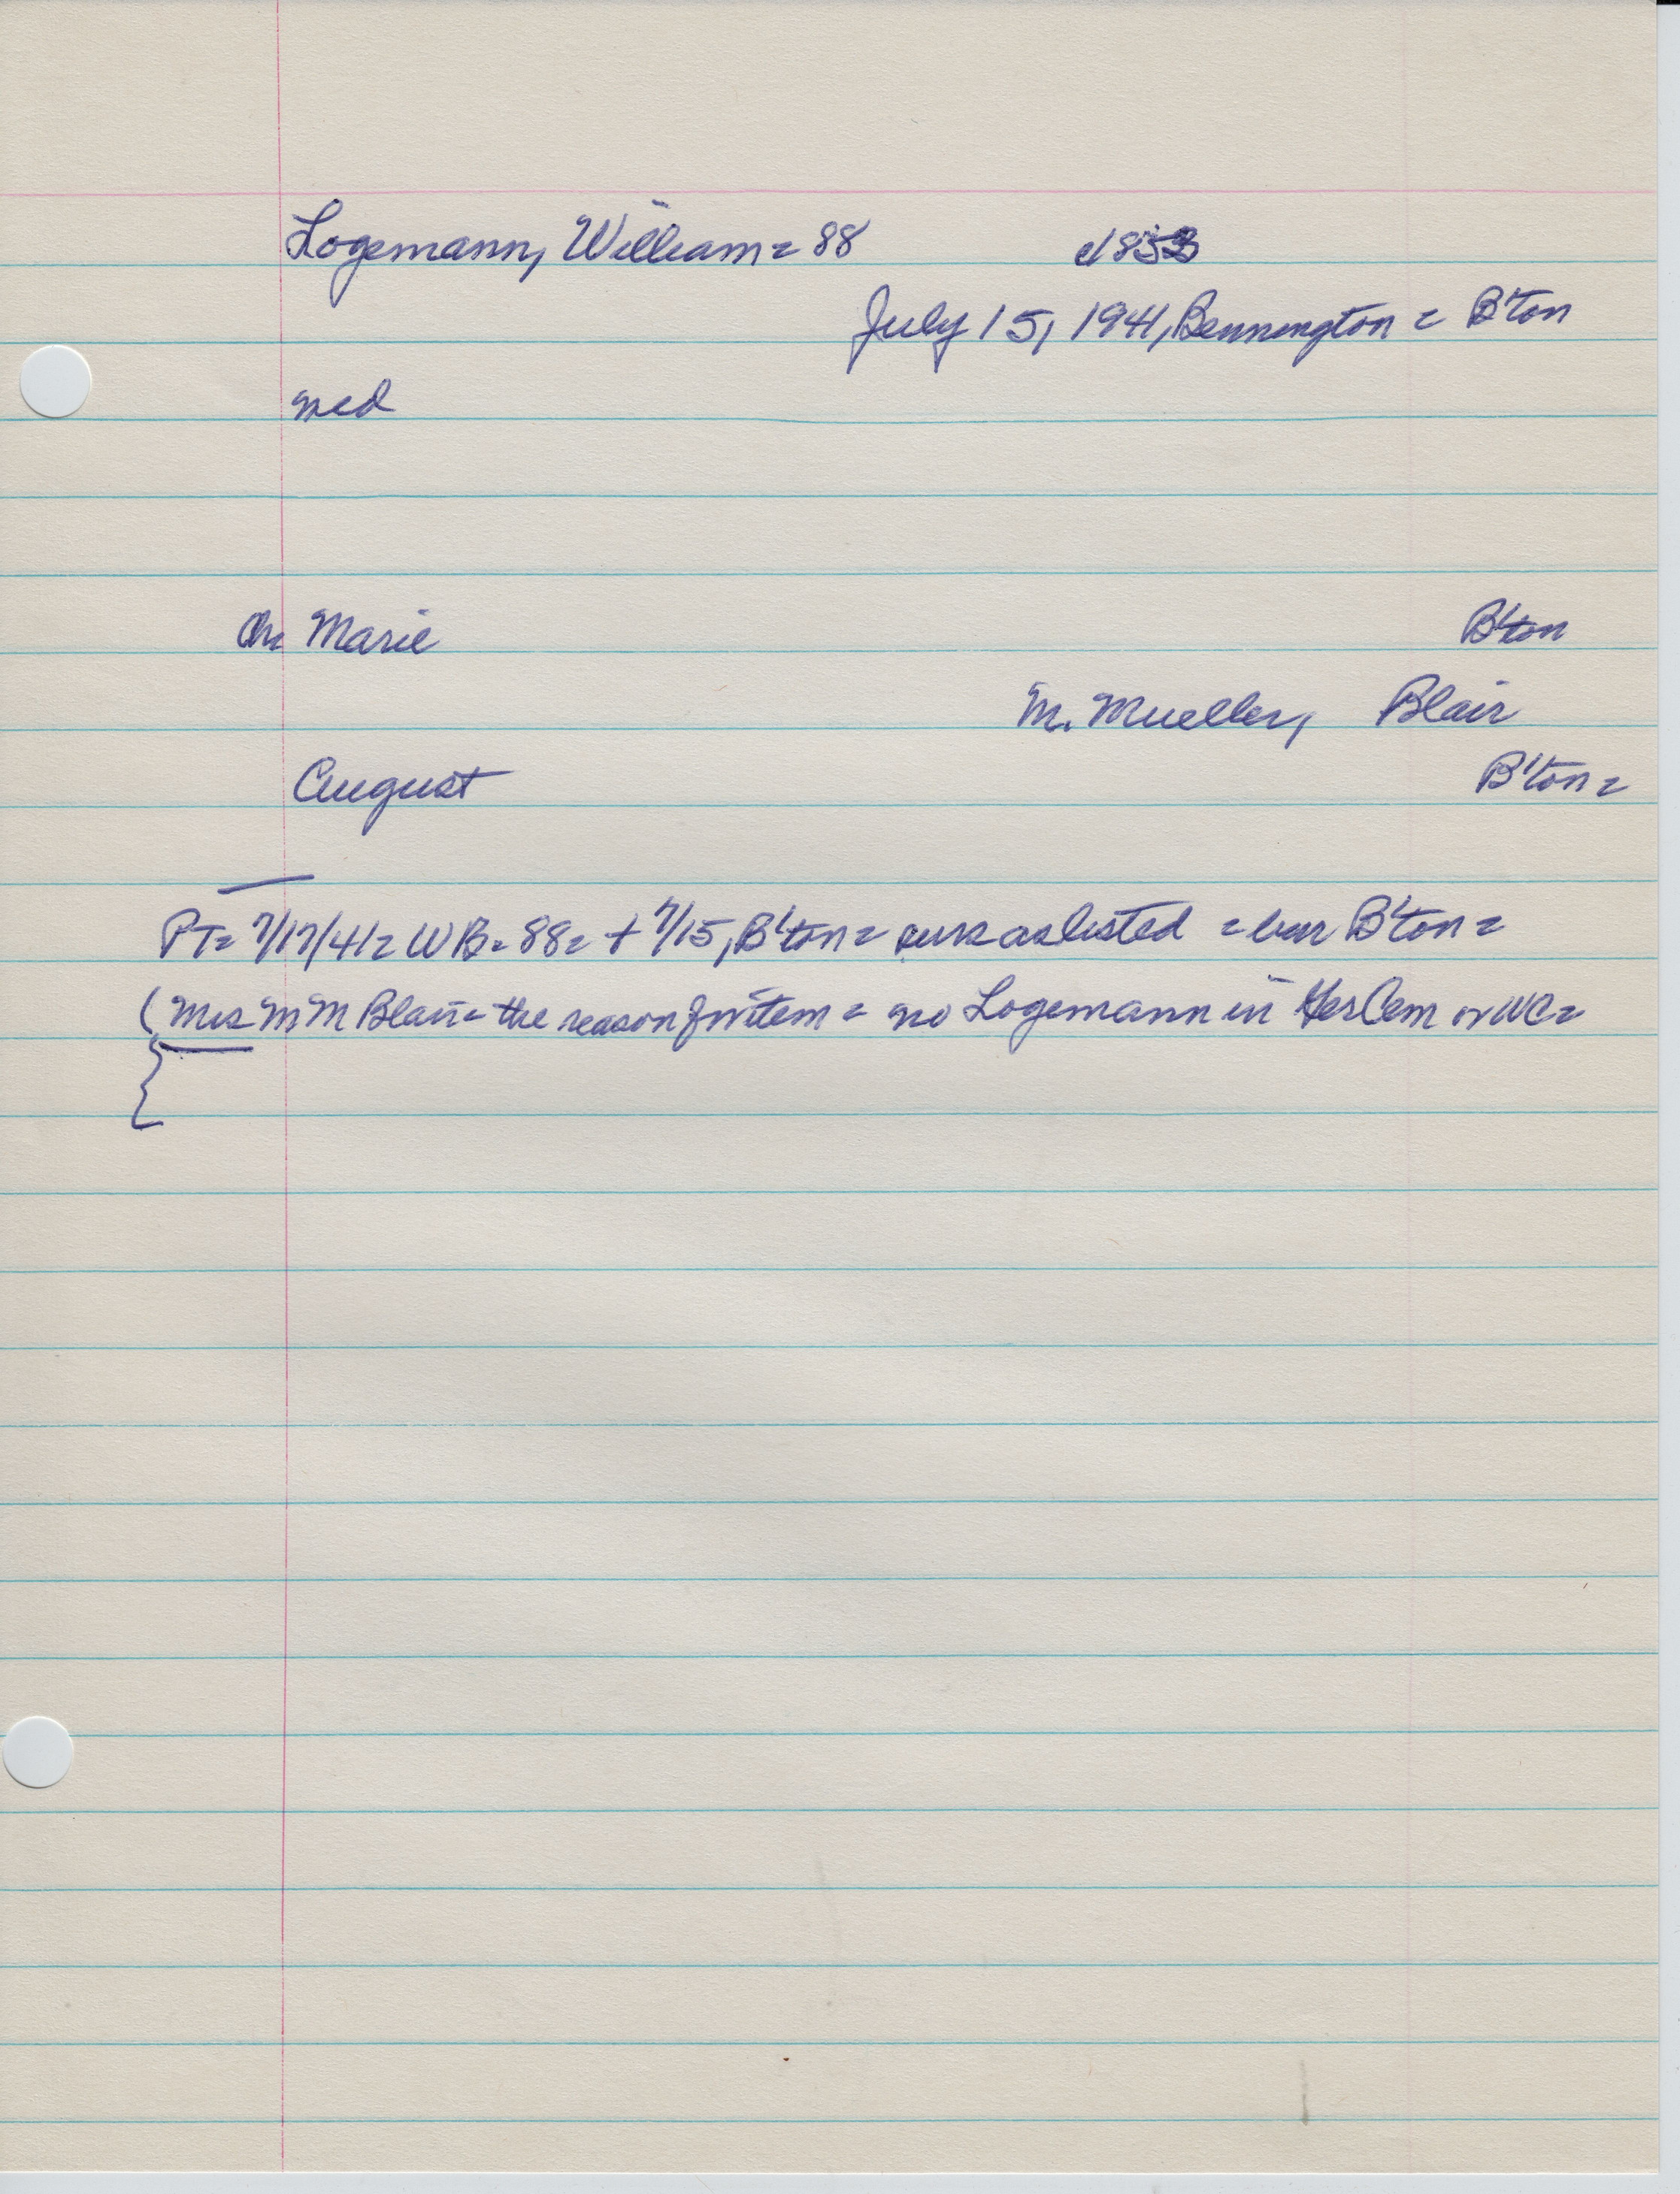 Logemann, William = 88 c1853
July 15, 1941, Bennington = B'ton
med
Ch Marie B'ton
M. Mueller, Blair
August B'ton =
PT = 7/17/41 = WB = 88 = + 7/15, B'ton = surs as listed = bur B'ton =
(Mrs M M Blair = the reason for item = no Logemann in Her Cem or WC =